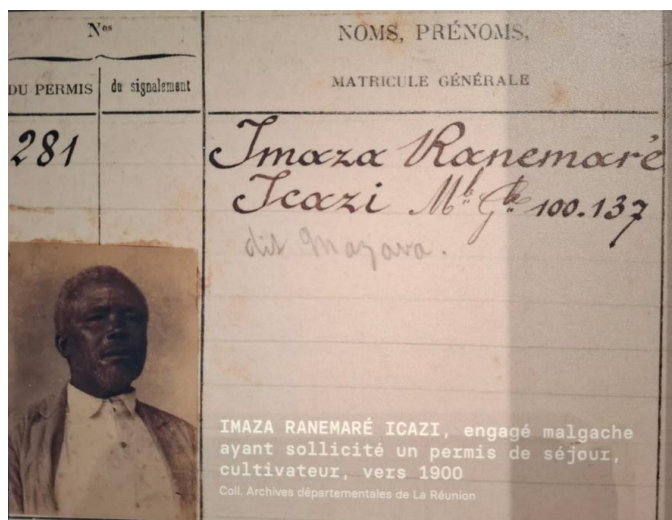 Nos
NOMS, PRÉNOMS,
DU PERMIS
du signalement
MATRICULE GÉNÉRALE
281
Imaza Ranemaré
Icazi Mle Gle 100.137
dit Mazava.
IMAZA RANEMARÉ ICAZI, engagé malgache
ayant sollicité un permis de séjour,
cultivateur, vers 1900
Coll. Archives départementales de La Réunion